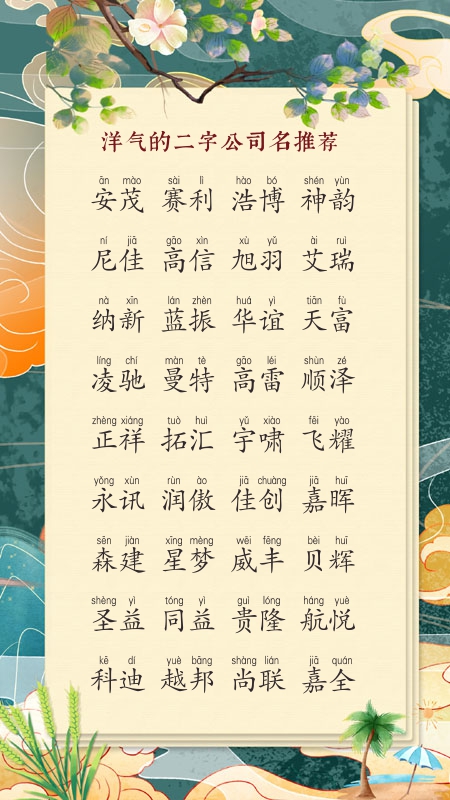 洋气的二字公司名推荐
ān mào sài lì hào bó shén yùn
安茂 赛利 浩博 神韵
ní jiā gāo xìn xù yǔ ài ruì
尼佳 高信 旭羽 艾瑞
nà xīn lán zhèn huá yì tiān fù
纳新 蓝振 华谊 天富
líng chí màn tè gāo léi shùn zé
凌驰 曼特 高雷 顺泽
zhèng xiáng tuò huì yǔ xiào fēi yào
正祥 拓汇 宇啸 飞耀
yǒng xùn rùn ào jiā chuàng jiā huī
永讯 润傲 佳创 嘉晖
sēn jiàn xīng mèng wēi fēng bèi huī
森建 星梦 威丰 贝辉
shèng yì tóng yì guì lóng háng yuè
圣益 同益 贵隆 航悦
kē dí yuè bāng shàng lián jiā quán
科迪 越邦 尚联 嘉全